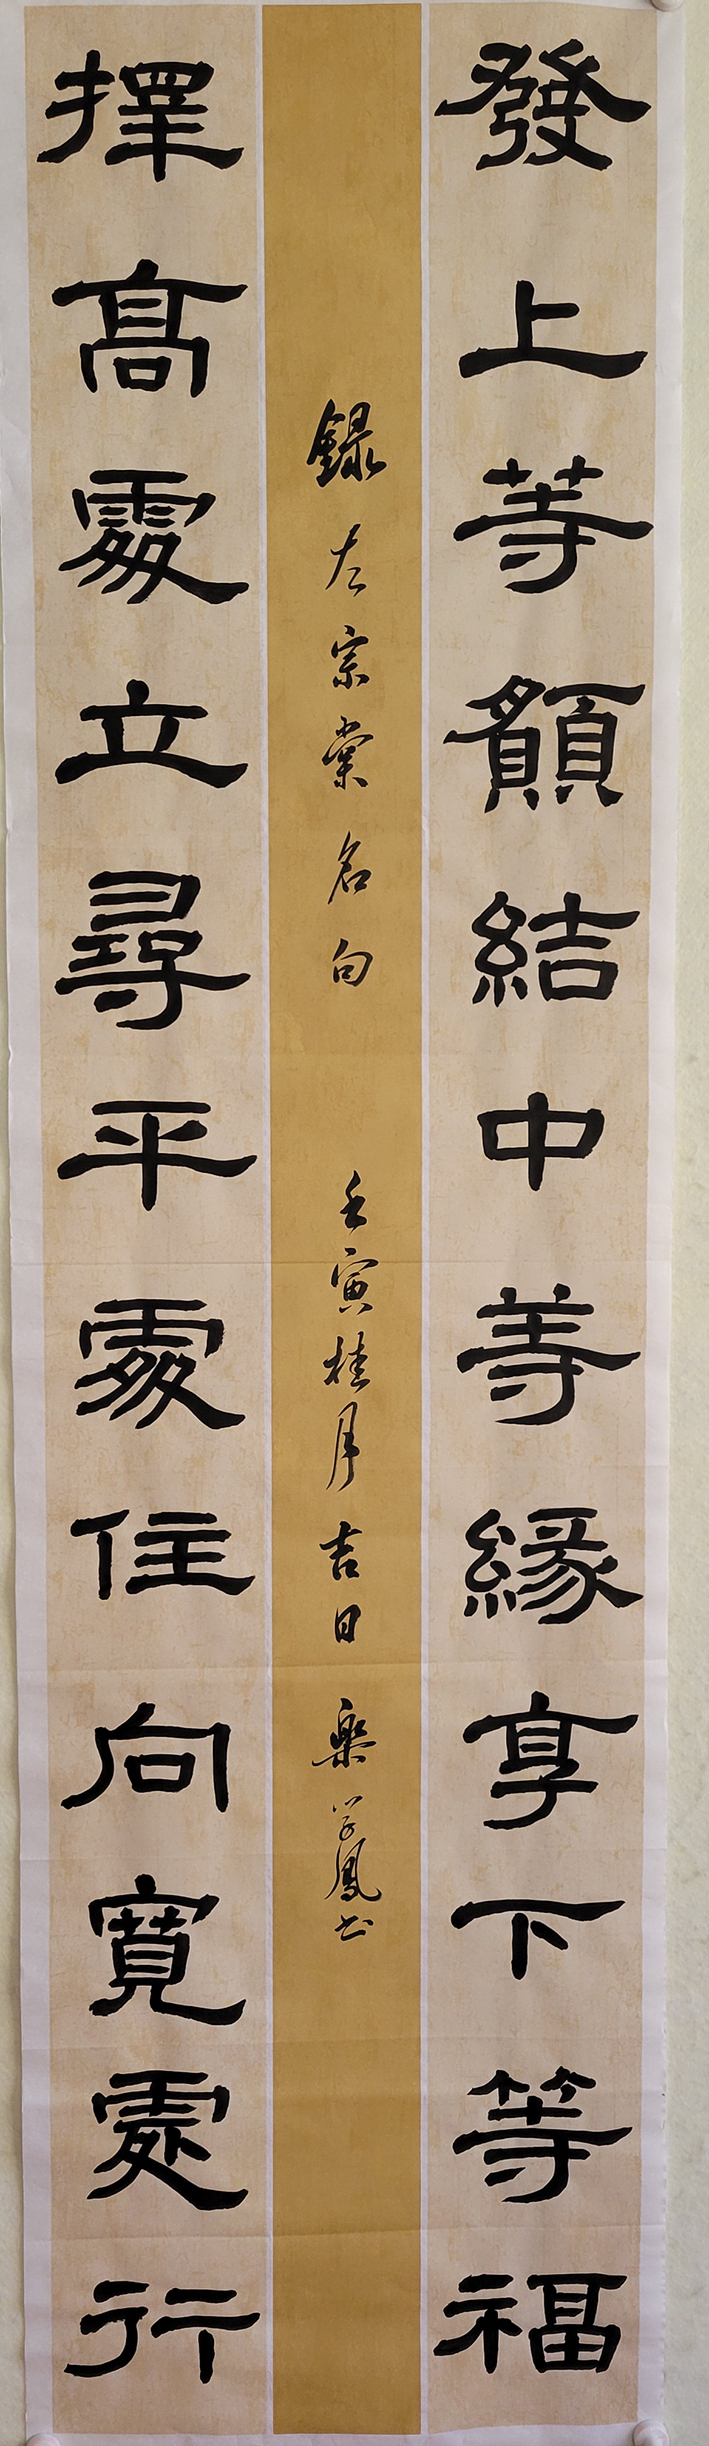 發上等願結中等緣享下等福
錄左宗棠名句 壬寅桂月吉日 樂学鳳书
擇高處立尋平處住向寬處行